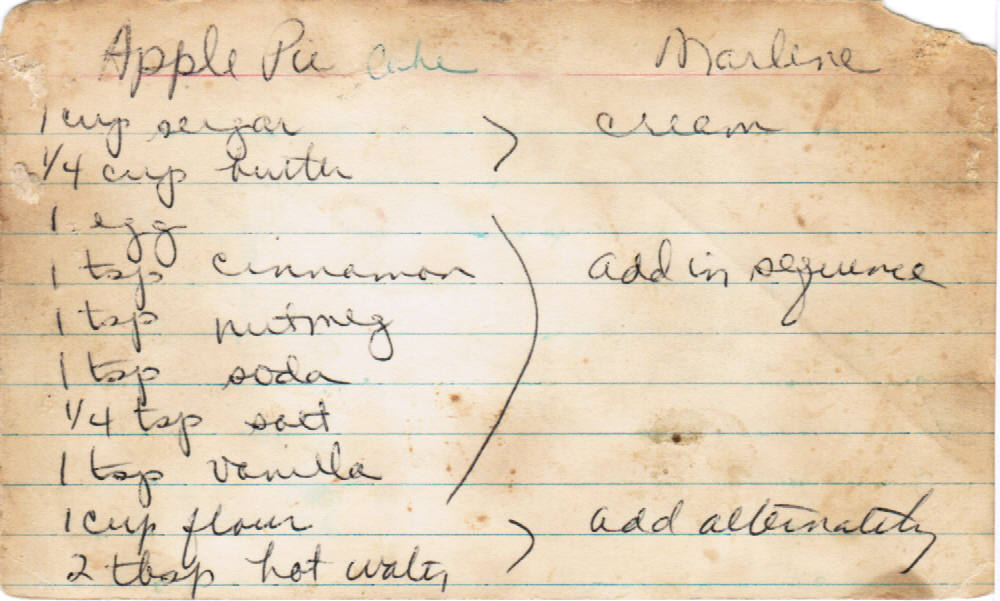 Apple Pie Cake Marlene
1 cup sugar cream
1/4 cup butter
1 egg
1 tsp cinnamon add in sequence
1 tsp nutmeg
1 tsp soda
1/4 tsp salt
1 tsp vanilla
1 cup flour add alternately
2 tbsp hot water